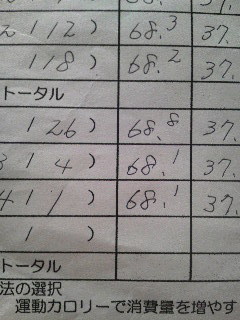 112) 68.3 37.
118) 68.2 37.
トータル
126) 68.8 37.
314) 68.1 37.
411) 68.1 37.
1 )
トータル
法の選択
運動カロリーで消費量を増やす